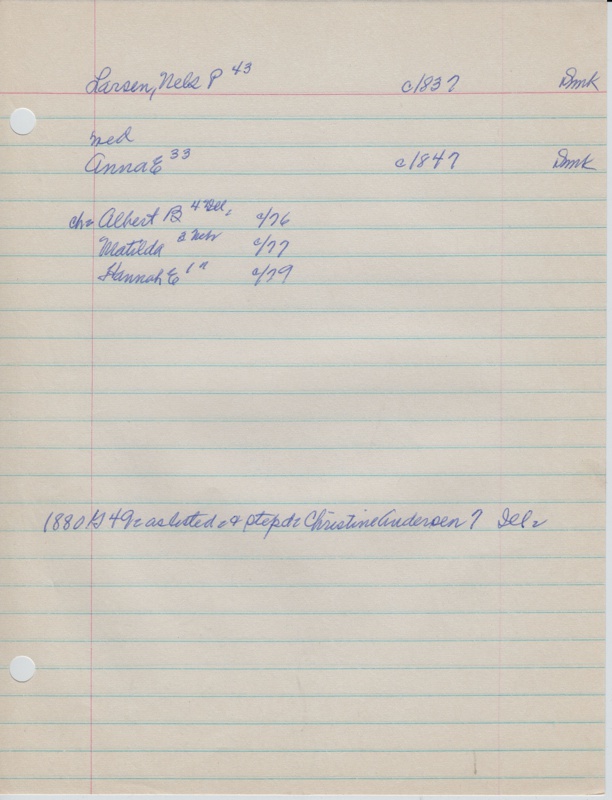 Larsen, Nels P 43 c1837 Dmk
med
Anna E 33 c1847 Dmk
ch: Albert B 4 Ill. c/76
Matilda 2 Neb c/77
Hannah E 1 " c/79
1880 49: as listed, & stepd: Christine Andersen 7 Ill.